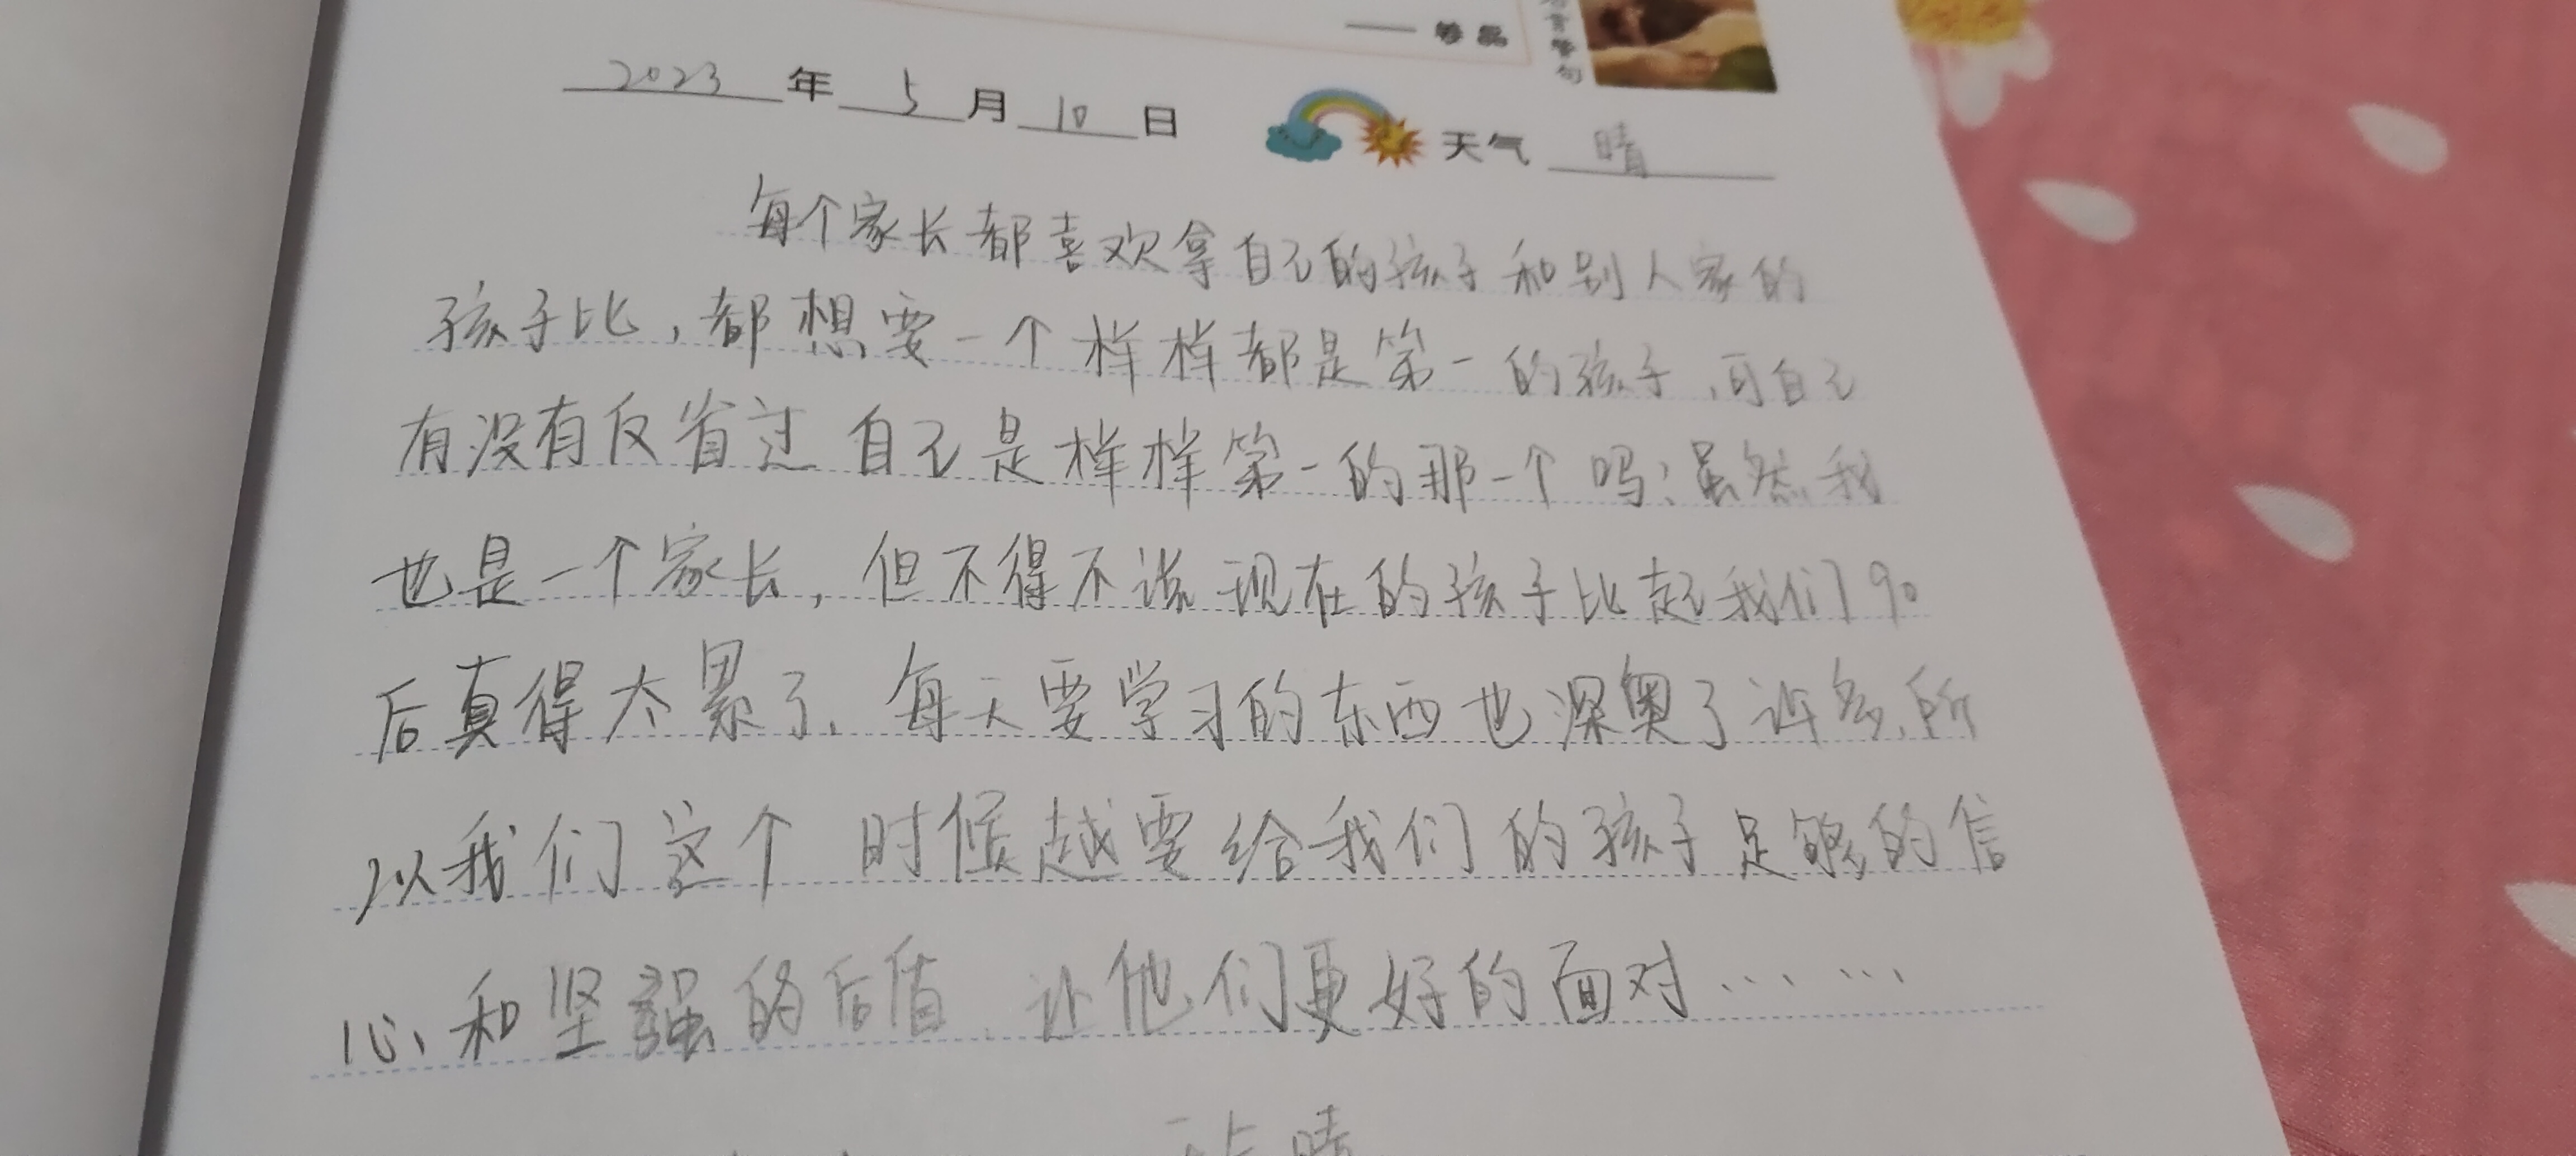 2023年5月10日 天气 晴
每个家长都喜欢拿自己的孩子和别人家的
孩子比，都想要一个样样都是第一的孩子，可自己
有没有反省过自己是样样第一的那一个吗？虽然我
也是一个家长，但不得不说现在的孩子比起我们90
后真得太累了，每天要学习的东西也深奥了许多，所
以我们这个时候越要给我们的孩子足够的信
心和坚强的后盾，让他们更好的面对……